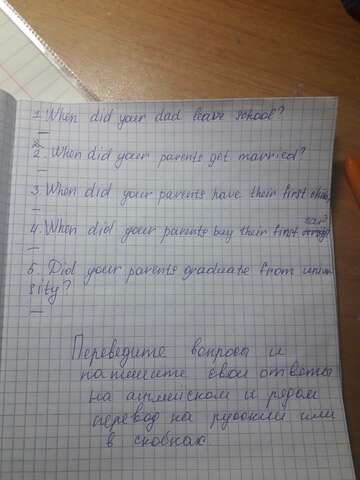 1. When did your dad leave school?
2. When did your parents get married?
3. When did your parents have their first child,
car?
4. When did your parents buy their first
5. Did your parents graduate from univer
sity?
Переведите вопросы и
напишите свои ответы
на английском и рядом
перевод на русский или
в скобках